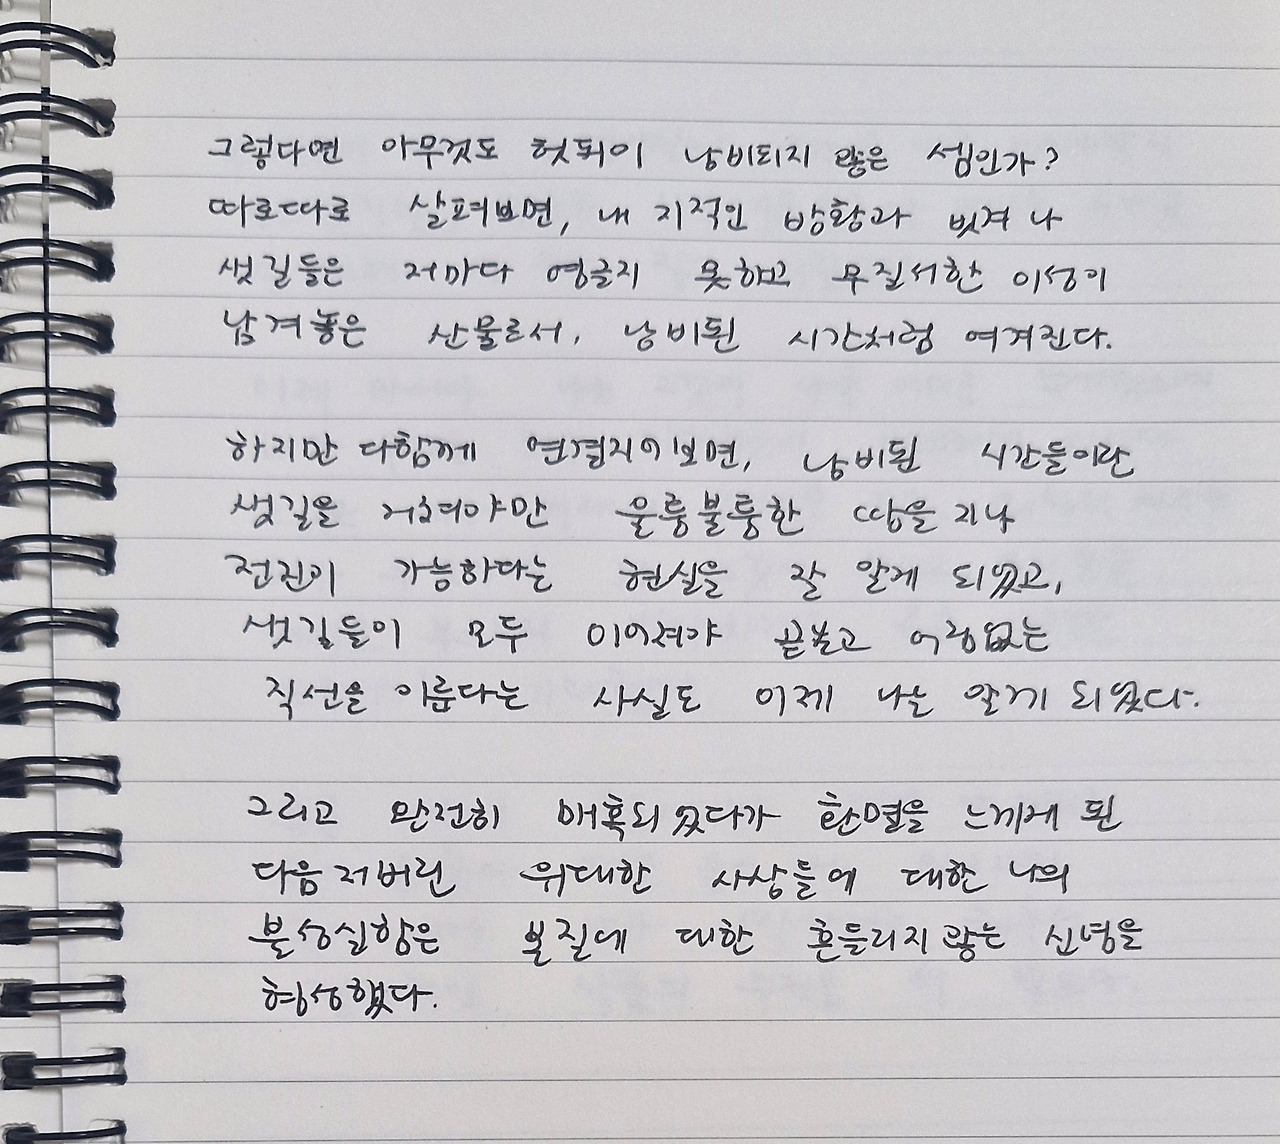 그렇다면 아무것도 헛되이 낭비되지 않은 셈인가?
따로따로 살펴보면, 내 지적인 방황과 빗겨 나
샛길들은 저마다 영글지 못하고 무질서한 이성이
남겨놓은 산물로서, 낭비된 시간처럼 여겨진다.
하지만 다함께 연결지어보면, 낭비된 시간들이란
샛길을 거쳐야만 울퉁불퉁한 땅을 지나
전진이 가능하다는 현실을 잘 알게 되었고,
샛길들이 모두 이어져야 곧보고 어김없는
직선을 이룬다는 사실도 이제 나는 알게 되었다.
그리고 완전히 매혹되었다가 환멸을 느끼게 된
다음 저버린 위대한 사상들에 대한 나의
불성실함은 본질에 대한 흔들리지 않는 신념을
형성했다.